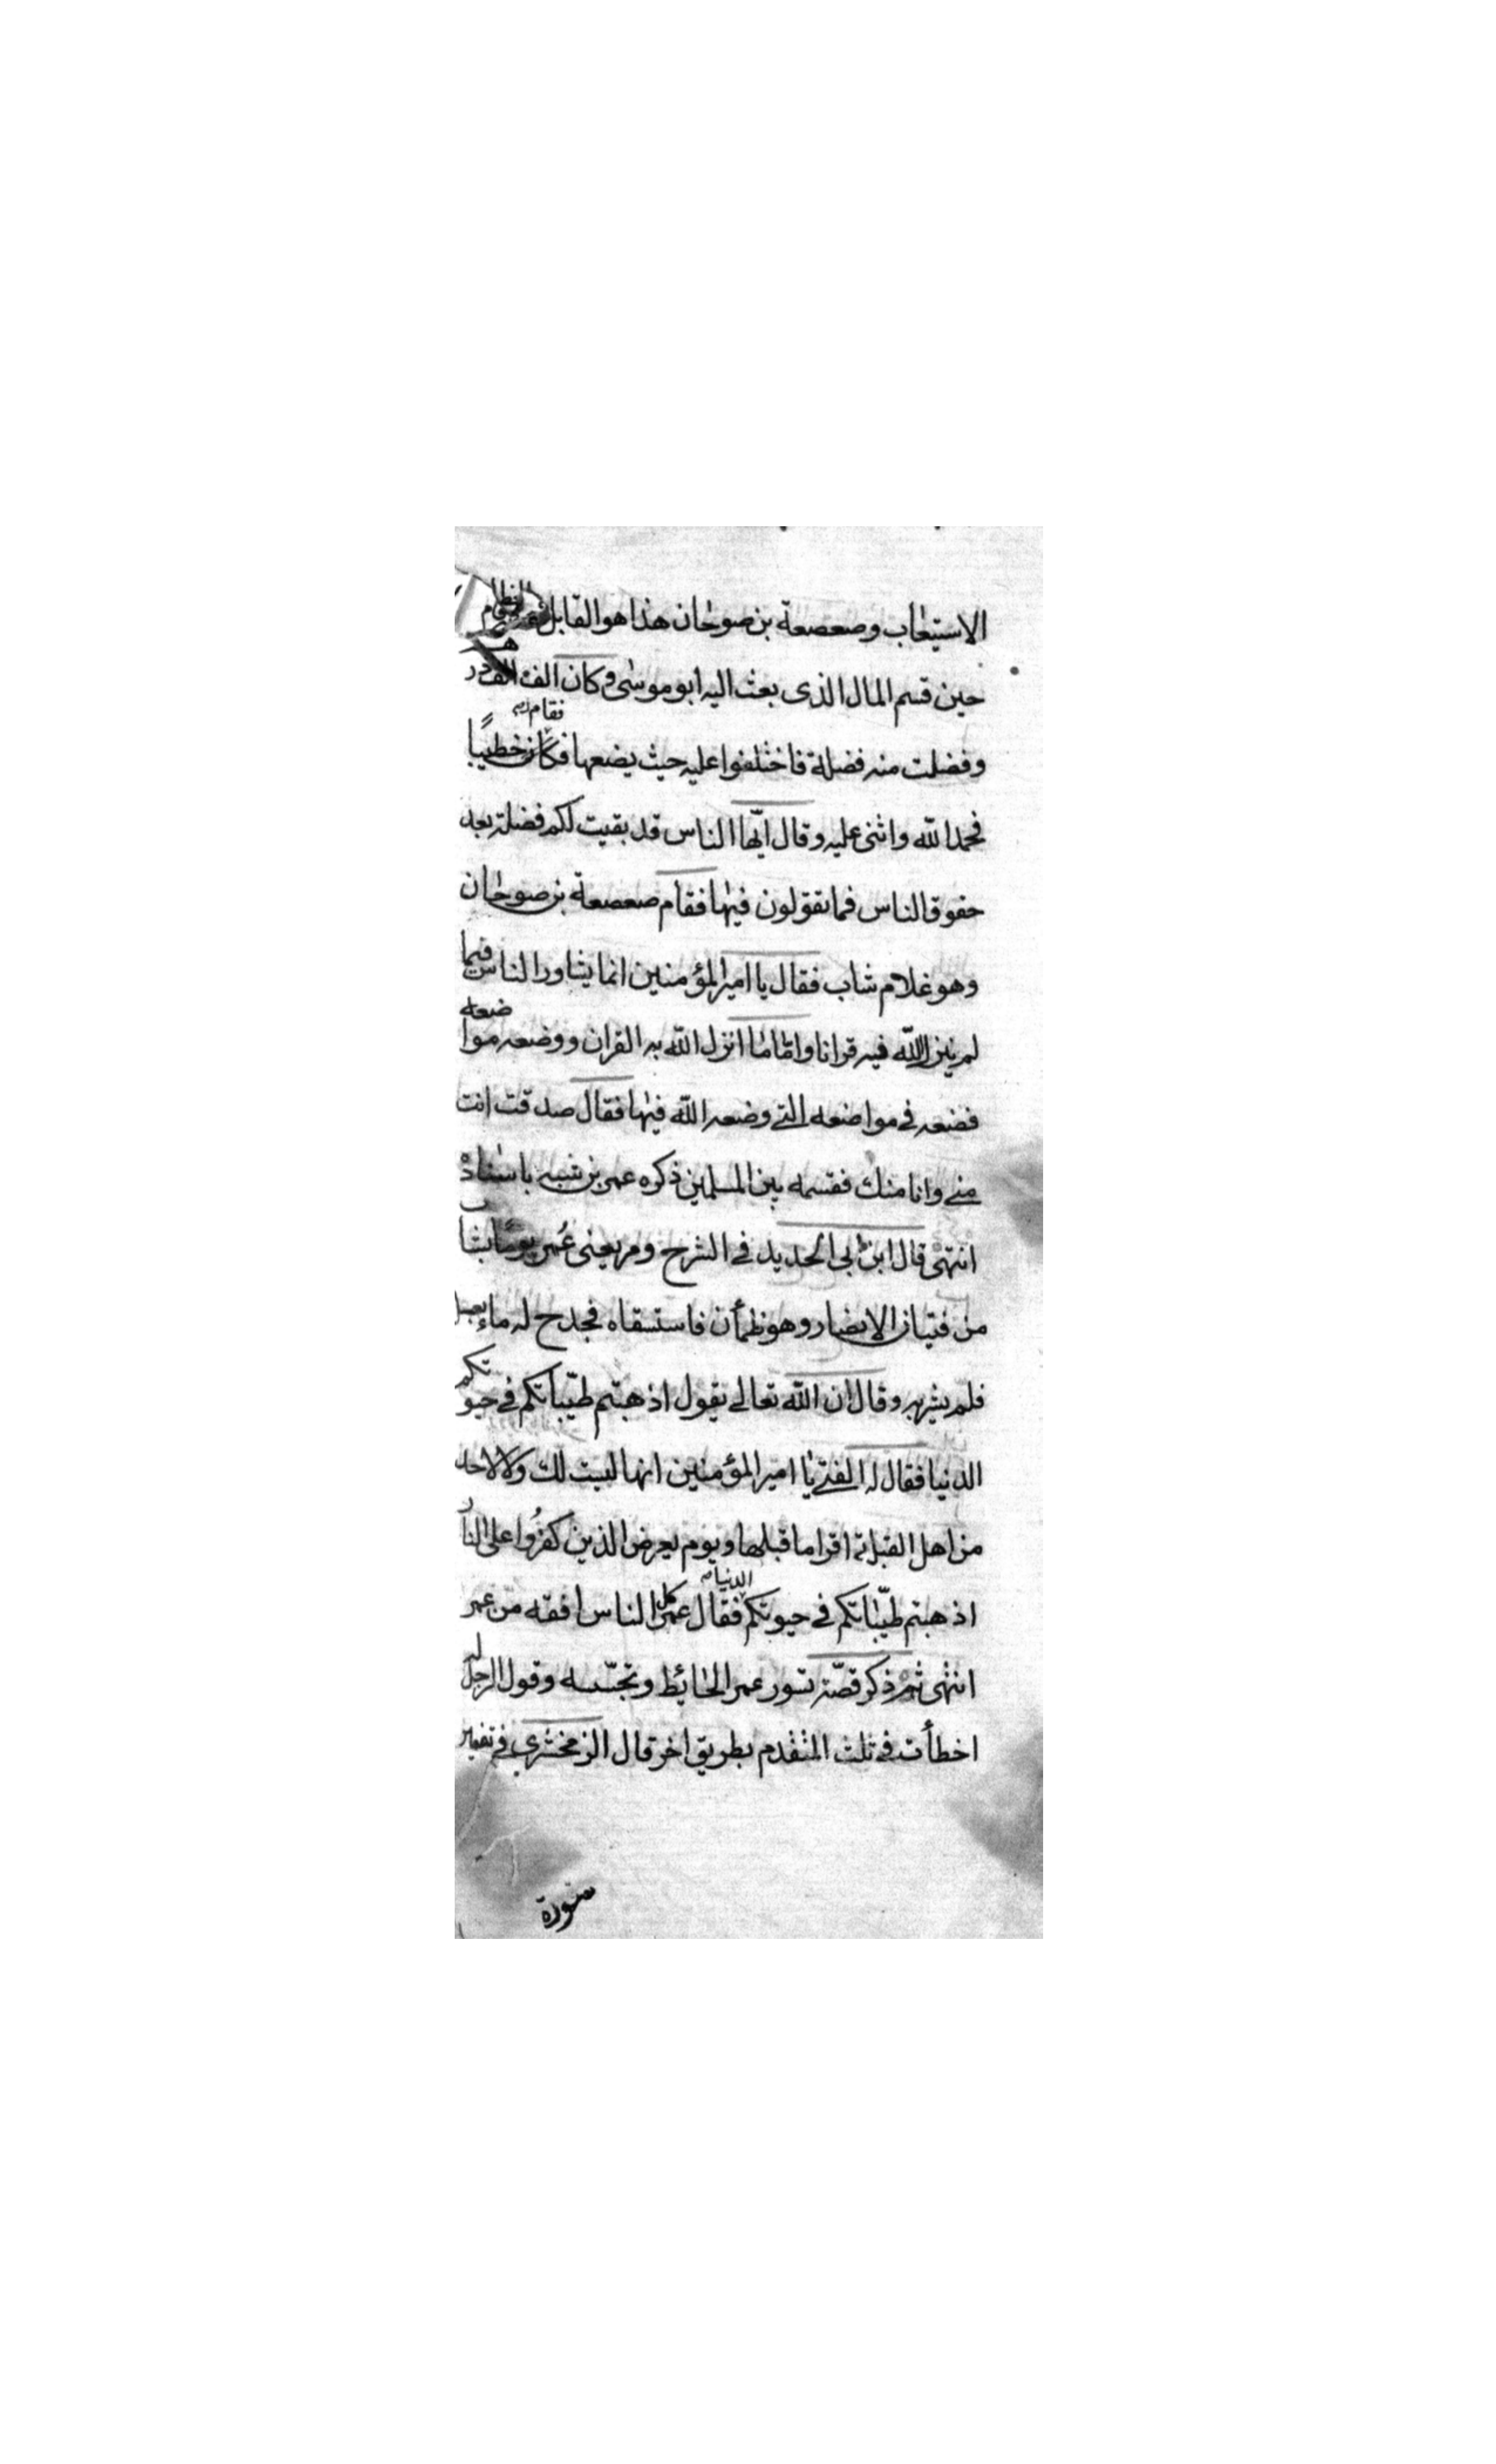 الاستيعاب وصعصعة بن صوحان هذا هو القايل
حين قسم المال الذى بعث اليه ابو موسى وكان الف الف در هم
وفضلت منه فضلة فاختلفوا عليه حيث يضعها فقام خطيبًا
فحمد الله واثنى عليه وقال ايّها الناس قد بقيت لكم فضلة بعد
حقوق الناس فما تقولون فيها فقام صعصعة بن صوحان
وهو غلام شاب فقال يا امير المؤمنين انما يشاور الناس فيما
لم ينزل الله فيه قرانا وامّا ما انزل الله به القران ووضعه مواضعه
فضعه فى مواضعه التى وضعه الله فيها فقال صدقت انت
منى وانا منك فقسمه بين المسلمين ذكره عمر بن شبه باسناده
انتهى قال ابن ابى الحديد فى الشرح ومر يعنى عُمر يومًا بشاب
من فتيان الانصار وهو ظمأن فاستسقاه فجدح له ماء بعسل
فلم يشربه وقال ان الله تعالى يقول اذهبتم طيّباتكم فى حيوتكم
الدنيا فقال له الفتى يا امير المؤمنين انها ليست لك ولا لاحد
من اهل القبلة اقرا ما قبلها ويوم يعرض الذين كفرُوا على النار
اذهبتم طيّباتكم فى حيوتكم الدنيا فقال عمر كل الناس افقه من عمر
انتهى ثم ذكر قصّة تسور عمر الحائط وتجسّسه وقول الرجل له
اخطأت فى ثلث المتقدم بطريق اخر قال الزمخشرى فى تفسير
سورة